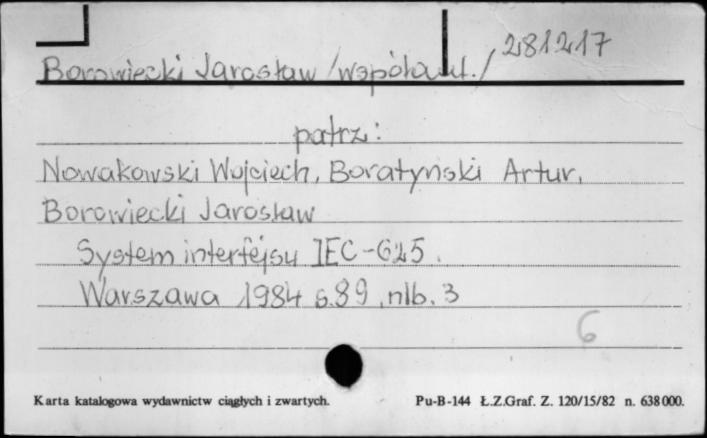 Borowiecki Jarosław /współaut./ 281217
patrz:
Nowakowski Wojciech, Boratyński Artur,
Borowiecki Jarosław
System interfejsu IEC-625.
Warszawa 1984 s.89, nlb. 3
6
Karta katalogowa wydawnictw ciągłych i zwartych. Pu-B-144 Ł.Z.Graf. Z. 120/15/82 n. 638000.